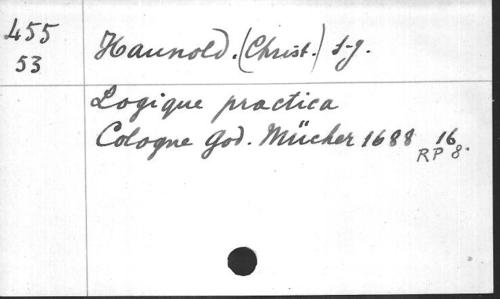 455
53
Haunold. (Christ.) s-j.
Logique practica
Cologne God. Mücher 1688 16.
RP 8.